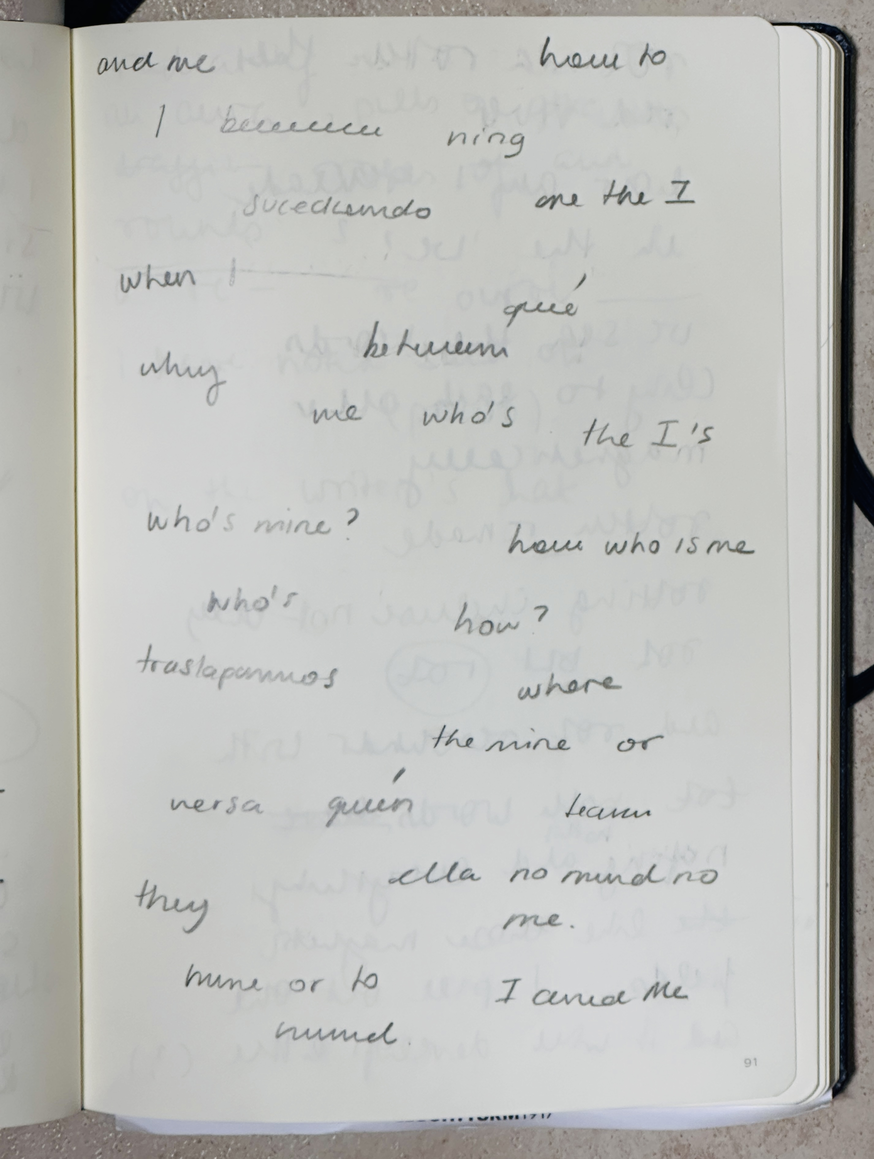 and me how to
I ning
sucediendo are the I
when I
qué
between
why
me who's the I's
who's mine?
how who is me
who's
how?
traslapamos
where
the mine or
versa quién
ella no mind no
they
me.
mine or to
I and Me
mind.
91